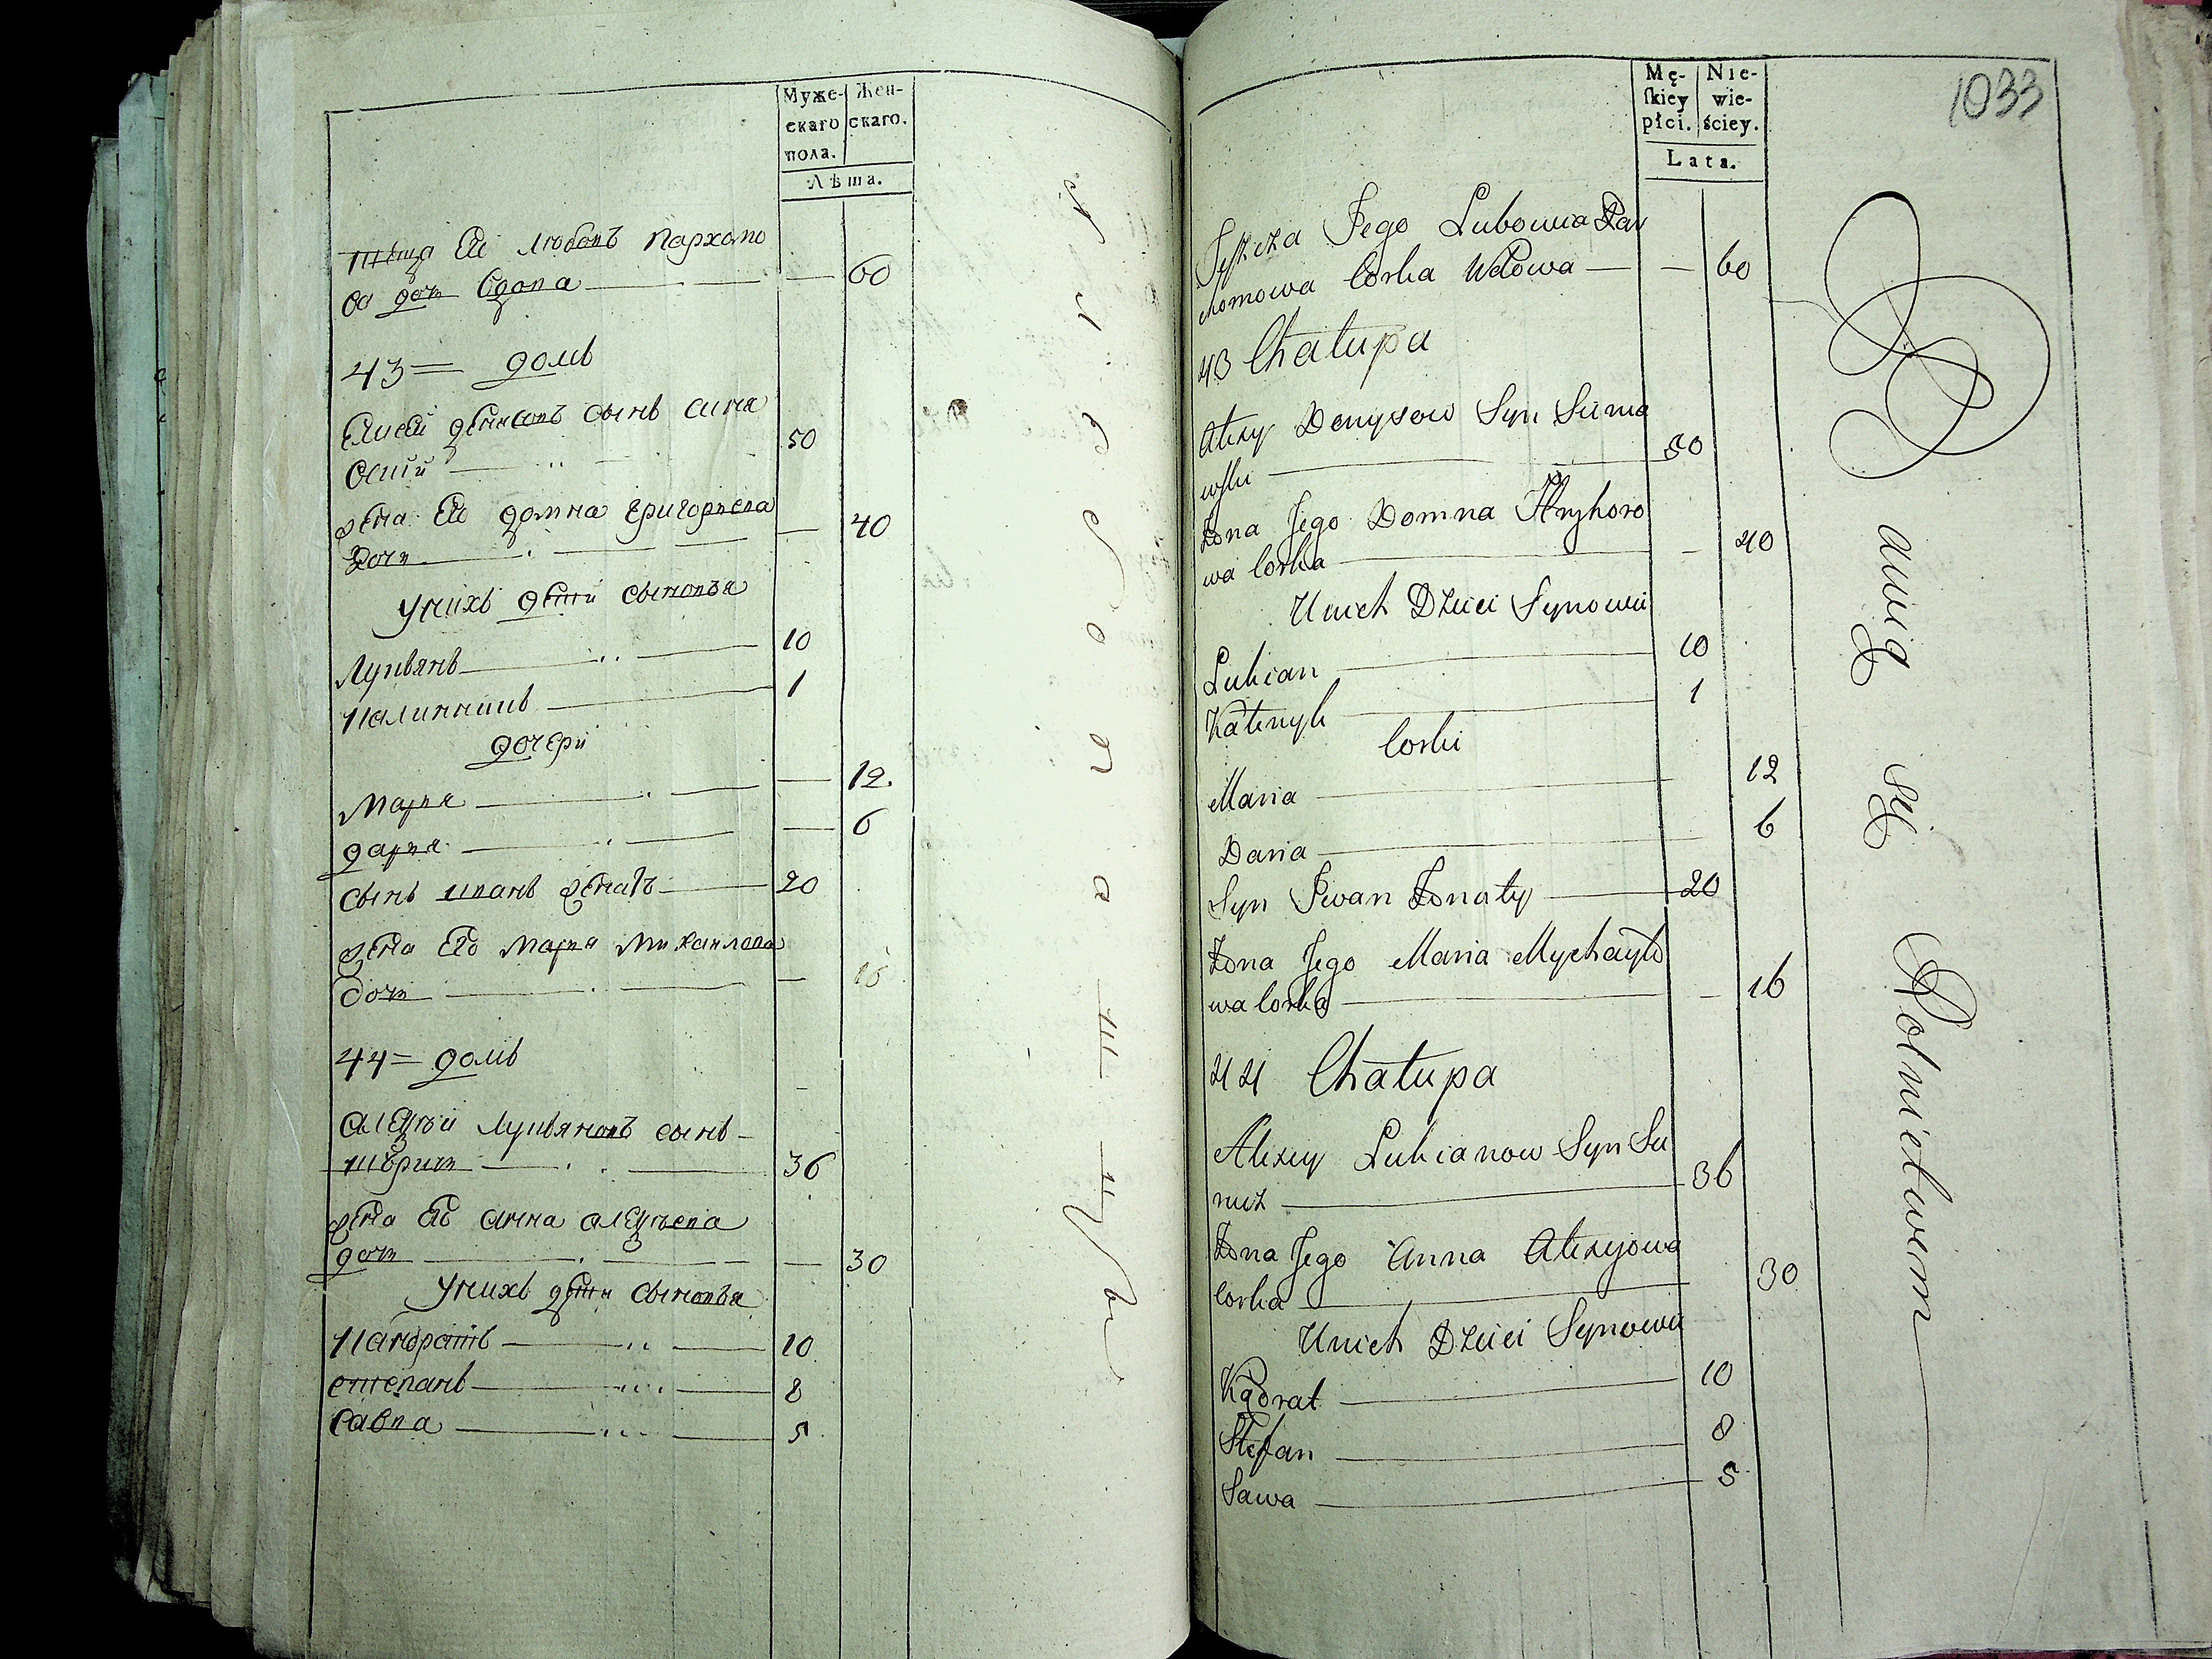 Муже-
скаго
пола.
Жен-
скаго.
Лѣта.
тѣща Его Любовъ Пархомо
ва дочь вдова — — 60
43 = домъ
дѣнисовъ сынъ сима
50
жена Его домна григорьева
дочь — — 40
Унихъ дѣти сыновья
Лукьянъ — 10
— 1
дочери
Марья — — 12.
дарья — — 6
сынъ иванъ женатъ — 20
жена Его Марья Михаилова
дочь — — 16
44 = домъ
алеѯѣй Лукьяновъ сынъ —
— 36
жена Его анна алеѯѣева
дочь — — 30
Унихъ дѣти сыновья
Кандратъ — 10
степанъ — 8
савва — 5
Mę-
skiey
płci.
Nie-
wie-
ściey.
Lata.
1033
Jego Lubowia Par
chomowa Corka Wdowa — — 60
43 Chałupa
Alexy Denysow Syn Suma
wski — 50
Żona Jego Domna Hryhoro
wa Corka — — 40
Unich Dzieci Synowie
Lukian — 10
Kalenyk — 1
Corki
Maria — 12
Daria — 6
Syn Iwan Żonaty — 20
Żona Jego Maria Mychayło
wa Corka — — 16
44 Chałupa
Alexey Lukianow Syn Su
— 36
Żona Jego Anna Alexyowa
Corka — 30
Unich Dzieci Synowie
Kądrat — 10
Stefan — 8
Sawa — 5
Bawią się Rolnictwem